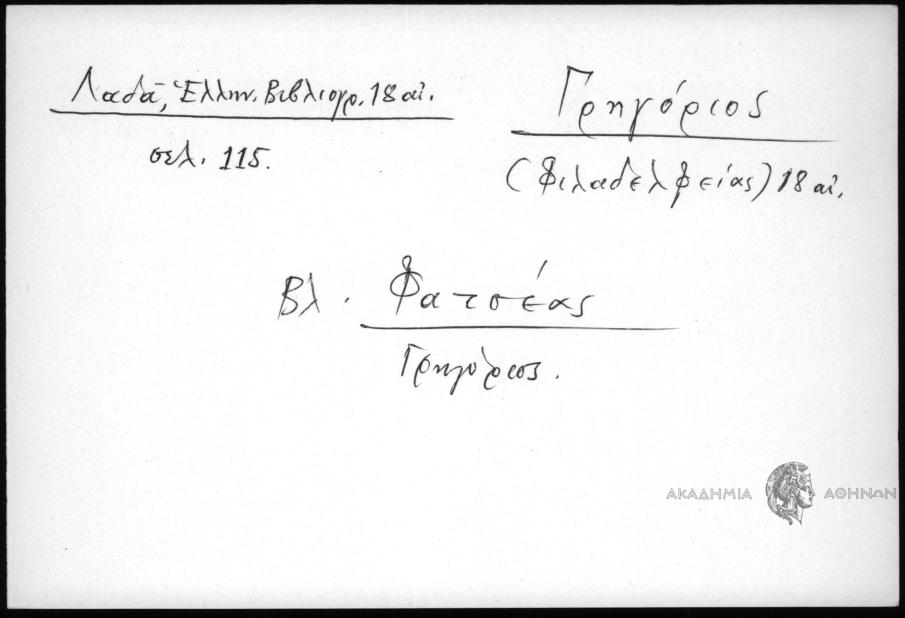 Λαδᾶ, Ἑλλην. Βιβλιογρ. 18 αἰ.
σελ. 115.
Γρηγόριος
(Φιλαδελφείας) 18 αἰ.
Βλ. Φατσέας
Γρηγόριος.
ΑΚΑΔΗΜΙΑ ΑΘΗΝΩΝ